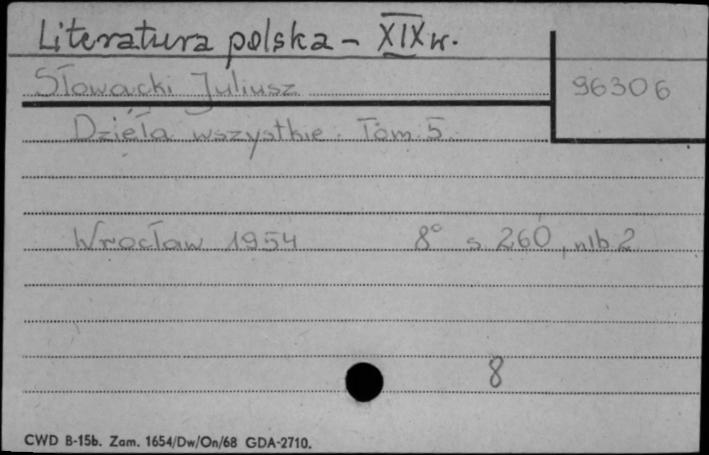 Literatura polska - XIX w.
Słowacki Juliusz
96306
Dzieła wszystkie. Tom 5.
Wrocław 1954 8° s. 260, nlb 2
8
CWD B-15b. Zam. 1654/Dw/On/68 GDA-2710.